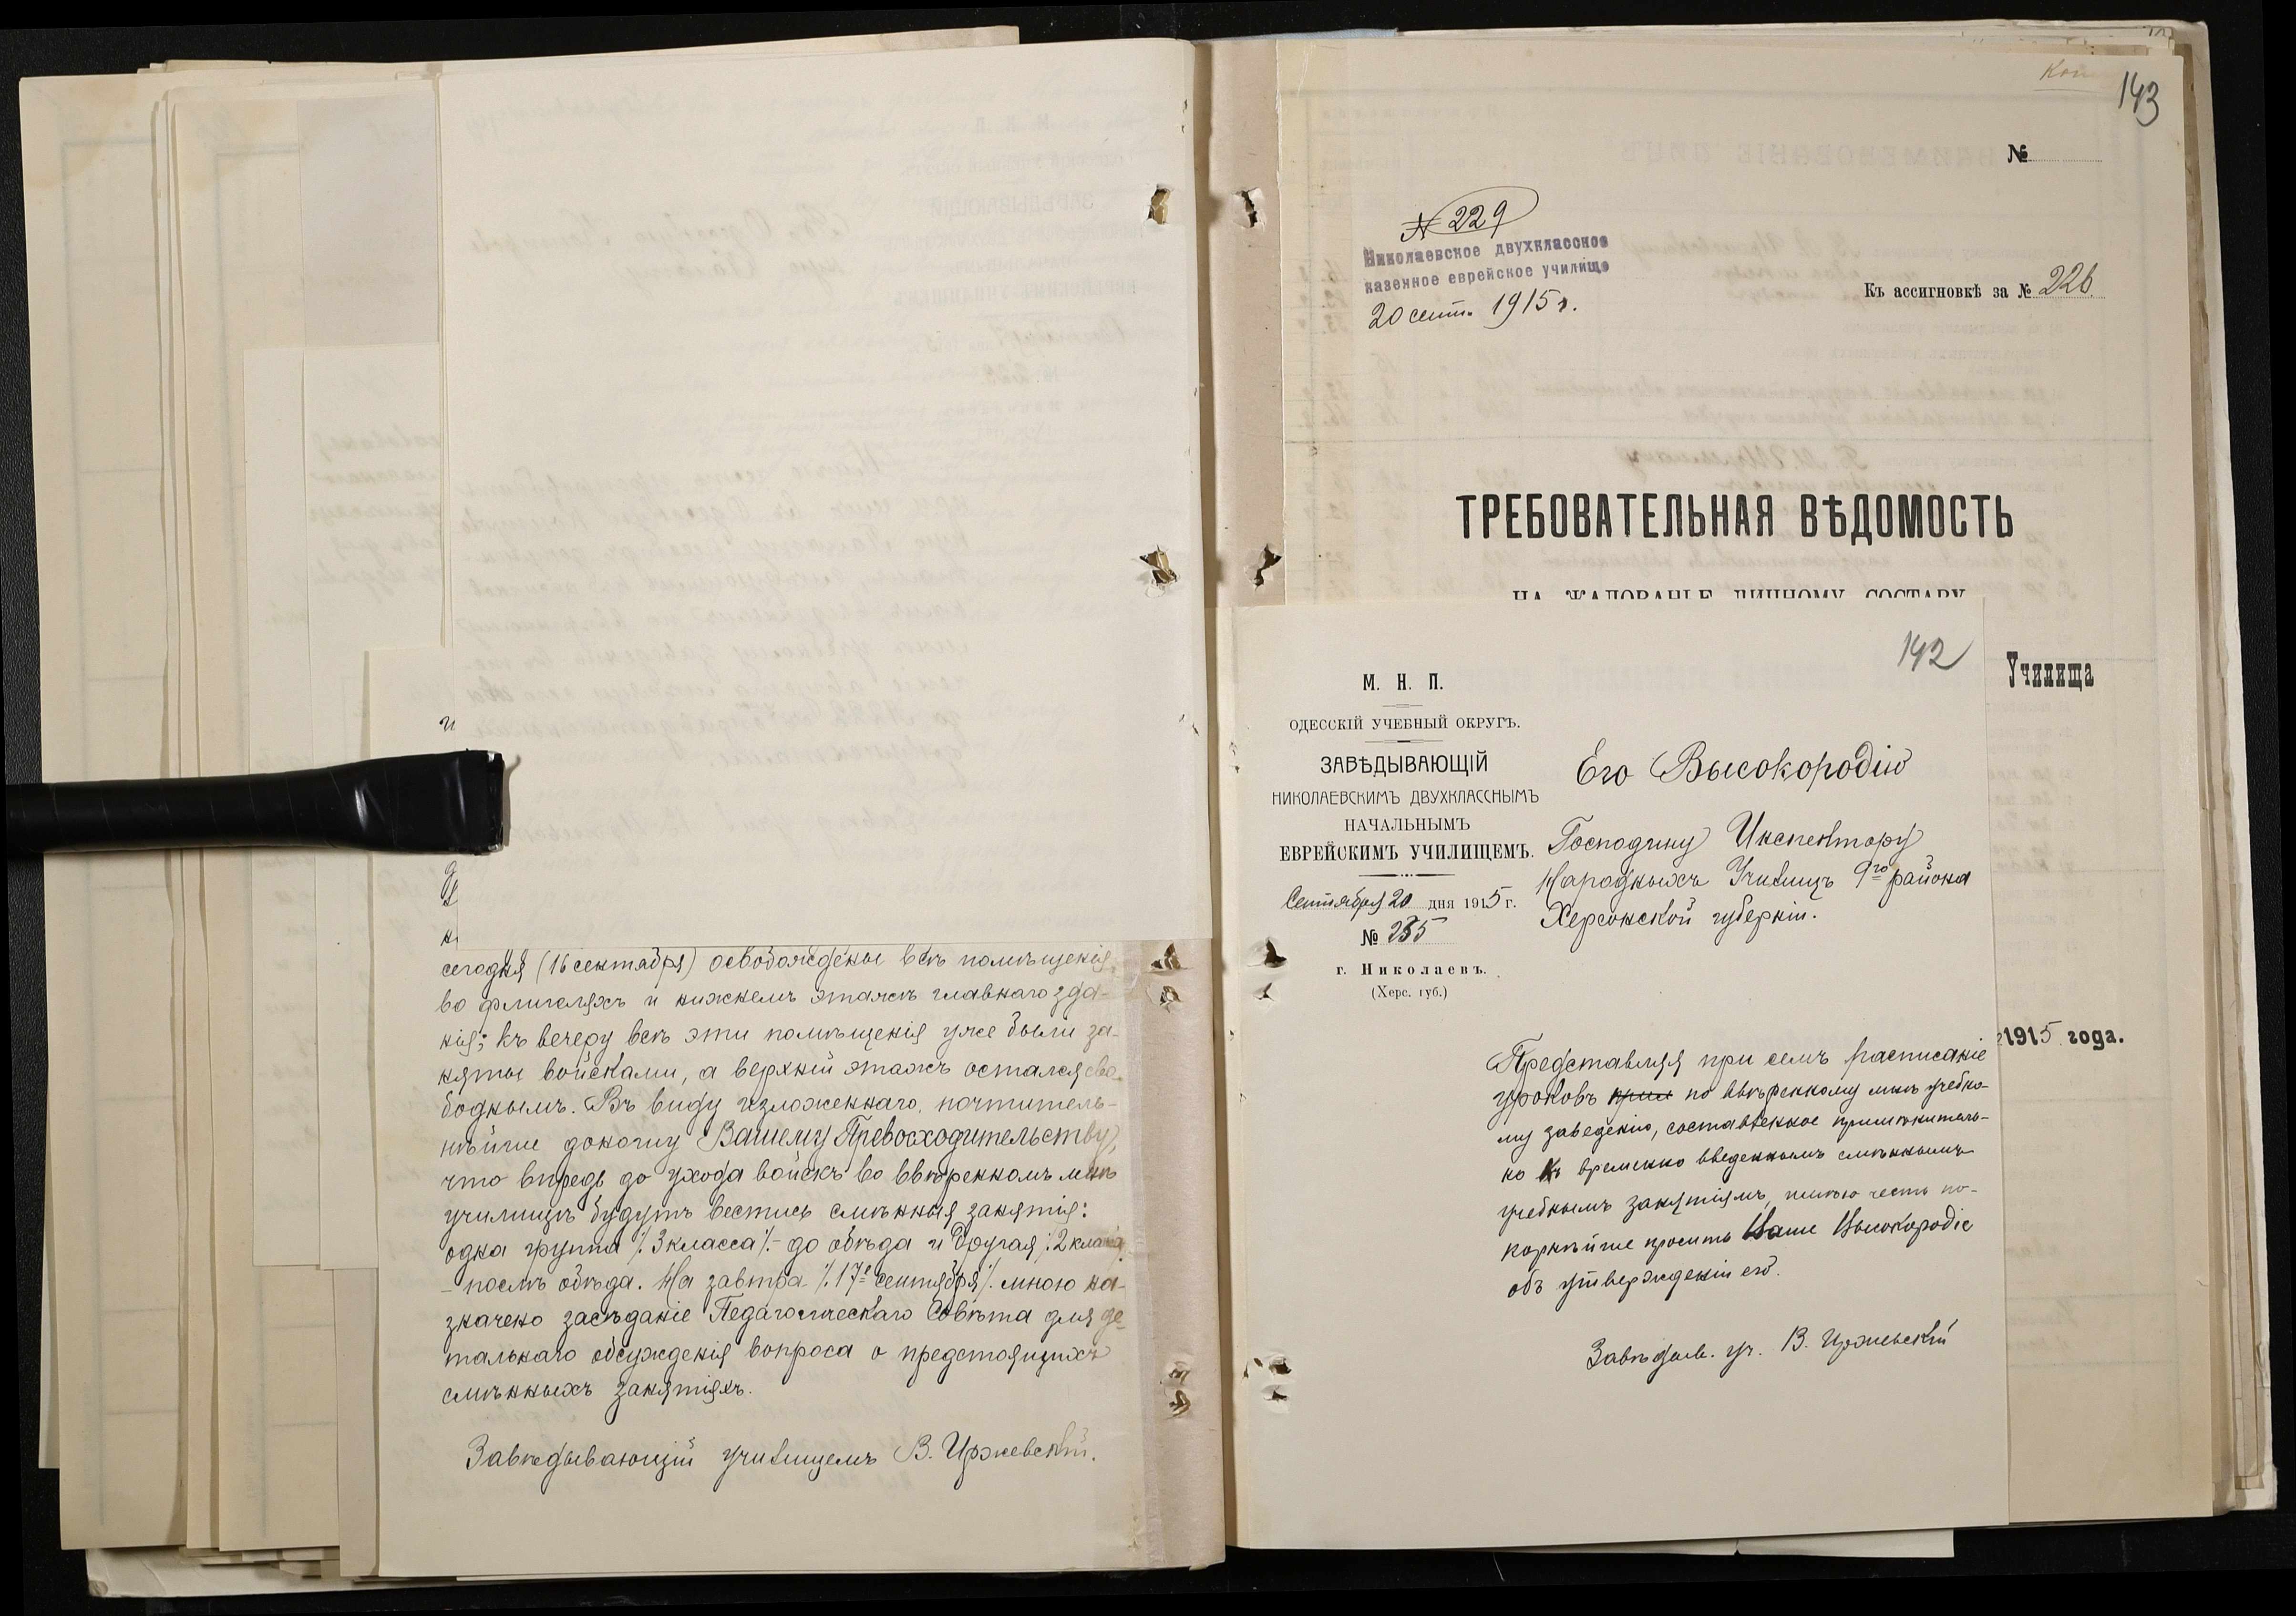 сегодня (16 сентября) освобождены всѣ помѣщенія
во флигеляхъ и нижнемъ этажѣ главнаго зда-
нія; къ вечеру всѣ эти помѣщенія уже были за-
няты войсками, а верхній этажъ остался сво-
боднымъ. Въ виду изложеннаго, почтитель-
нѣйше доношу Вашему Превосходительству,
что впредь до ухода войскъ во ввѣренномъ мнѣ
училищѣ будутъ вестись смѣнныя занятія:
одна группа /. 3 класса /. - до обѣда и другая /. 2 класса
- послѣ обѣда. На завтра /. 17е сентября /. мною на-
значено засѣданіе Педагогическаго Совѣта для де-
тальнаго обсужденія вопроса о предстоящихъ
смѣнныхъ занятіяхъ.
Завѣдывающій училищемъ В. Иржевскій.
143
№
№ 229
Николаевское двухклассное
казенное еврейское училище
20 сент. 1915 г.
Къ ассигновкѣ за № 226.
ТРЕБОВАТЕЛЬНАЯ ВѢДОМОСТЬ
НА ЖАЛОВАНЬЕ ЛИЧНОМУ СОСТАВУ
Училища
1915 года.
142
М. Н. П.
ОДЕССКІЙ УЧЕБНЫЙ ОКРУГЪ.
ЗАВѢДЫВАЮЩІЙ
НИКОЛАЕВСКИМЪ ДВУХКЛАССНЫМЪ
НАЧАЛЬНЫМЪ
ЕВРЕЙСКИМЪ УЧИЛИЩЕМЪ.
Сентября 20 дня 1915 г.
№ 235
г. Николаевъ.
(Херс. губ.)
Его Высокородію
Господину Инспектору
Народныхъ Училищъ 9го района
Херсонской губерніи.
Представляя при семъ расписаніе
уроковъ по ввѣренному мнѣ учебно-
му заведенію, составленное примѣнитель-
но къ временно введеннымъ смѣннымъ
учебнымъ занятіямъ, имѣю честь по-
корнѣйше просить Ваше Высокородіе
объ утвержденіи его.
Завѣдыв. уч. В. Иржевскій